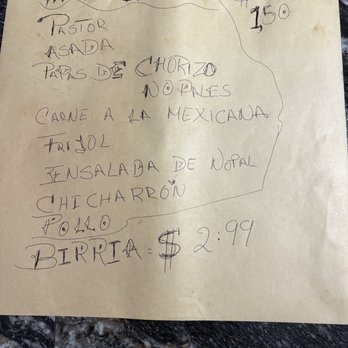 1,50
PASTOR
ASADA
PAPAS DE CHORIZO
NOPALES
CARNE A LA MEXICANA
FRIJOL
ENSALABA DE NOPAL
CHICHARRÓN
POLLO
BIRRIA = $ 2:99